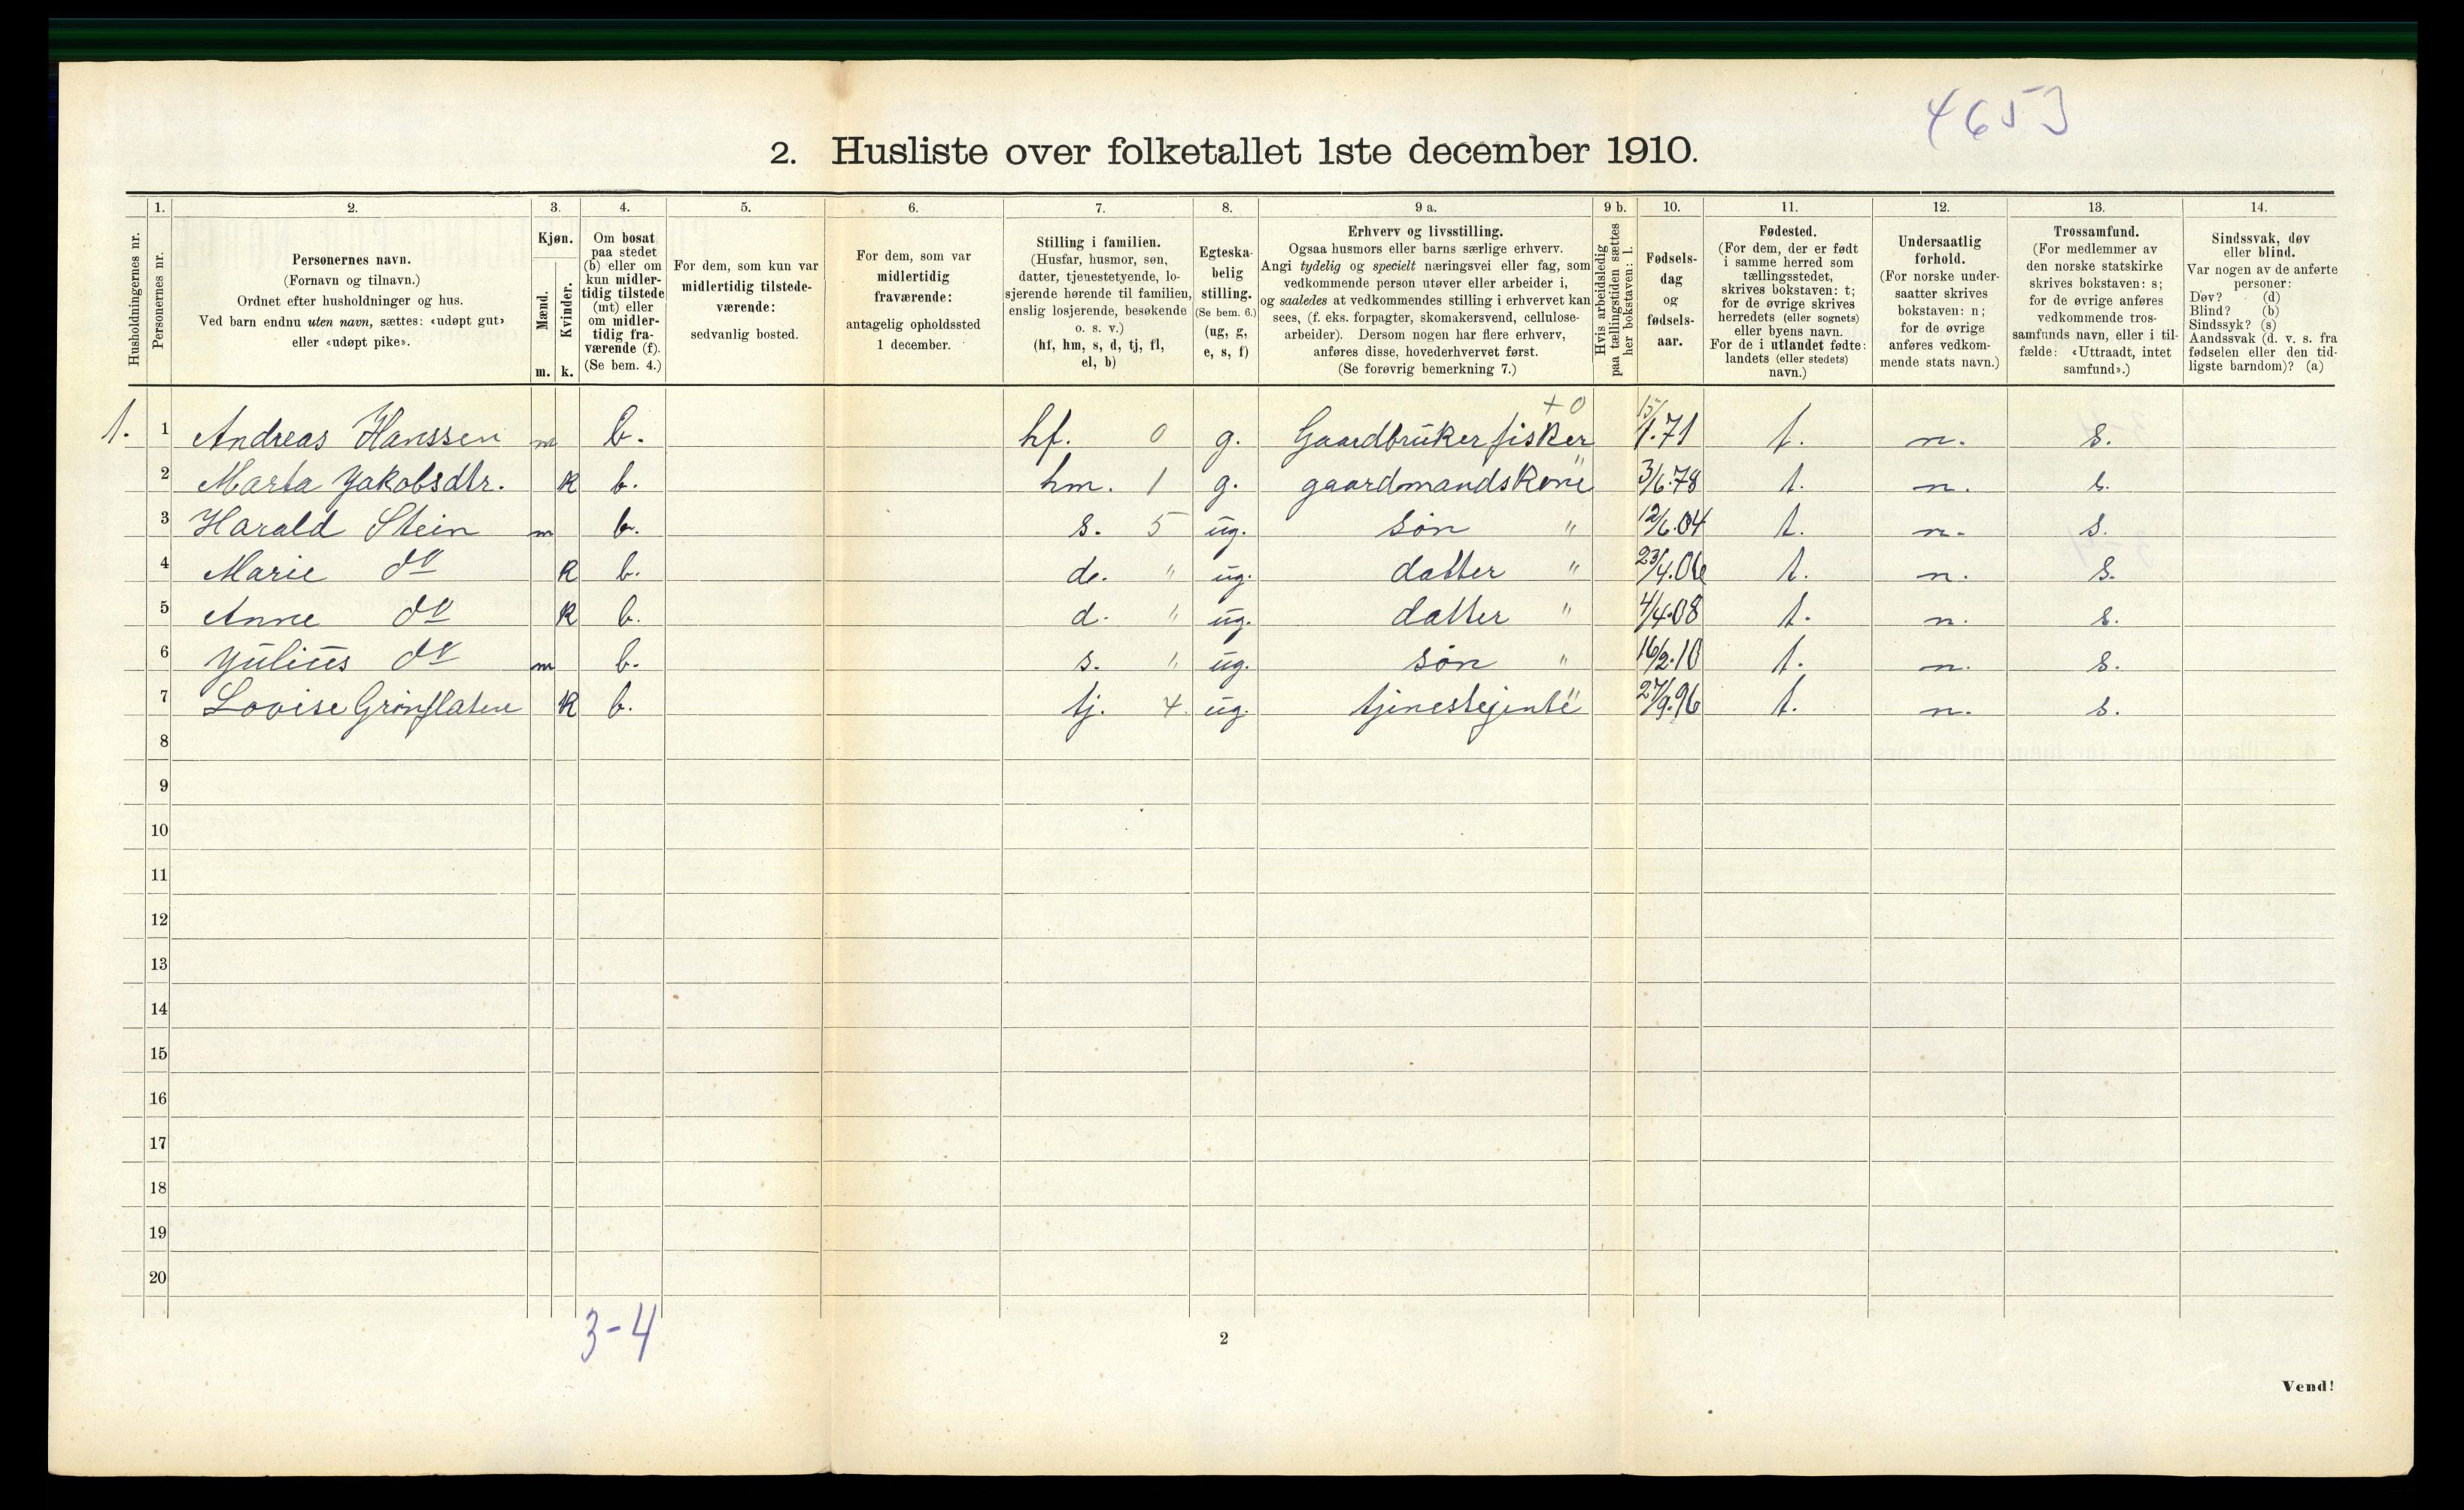 4653
2. Husliste over folketallet 1ste december 1910.
Husholdningernes nr.
1.
Personernes nr.
2.
Personernes navn.
(Fornavn og tilnavn.)
Ordnet efter husholdninger og hus.
Ved barn endnu uten navn, sættes: «udøpt gut»
eller «udøpt pike».
3.
Kjøn.
Mænd.
Kvinder.
m. k.
4.
Om bosat
paa stedet
(b) eller om
kun midler-
tidig tilstede
(mt) eller
om midler-
tidig fra-
værende (f).
(Se bem. 4.)
5.
For dem, som kun var
midlertidig tilstede-
værende:
sedvanlig bosted.
6.
For dem, som var
midlertidig
fraværende:
antagelig opholdssted
1 december.
7.
Stilling i familien.
(Husfar, husmor, søn,
datter, tjenestetyende, lo-
sjerende hørende til familien,
enslig losjerende, besøkende
o. s. v.)
(hf, hm, s, d, tj, fl,
el, b)
8.
Egteska-
belig
stilling.
(Se bem. 6.)
(ug, g,
e, s, f)
9 a.
Erhverv og livsstilling.
Ogsaa husmors eller barns særlige erhverv.
Angi tydelig og specielt næringsvei eller fag, som
vedkommende person utøver eller arbeider i,
og saaledes at vedkommendes stilling i erhvervet kan
sees, (f. eks. forpagter, skomakersvend, cellulose-
arbeider). Dersom nogen har flere erhverv,
anføres disse, hovederhvervet først.
(Se forøvrig bemerkning 7.)
9 b.
Hvis arbeidsledig
paa tællingstiden sættes
her bokstaven: l.
10.
Fødsels-
dag
og
fødsels-
aar.
11.
Fødested.
(For dem, der er født
i samme herred som
tællingsstedet,
skrives bokstaven: t;
for de øvrige skrives
herredets (eller sognets)
eller byens navn.
For de i utlandet fødte:
landets (eller stedets)
navn.)
12.
Undersaatlig
forhold.
(For norske under-
saatter skrives
bokstaven: n;
for de øvrige
anføres vedkom-
mende stats navn.)
13.
Trossamfund.
(For medlemmer av
den norske statskirke
skrives bokstaven: s;
for de øvrige anføres
vedkommende tros-
samfunds navn, eller i til-
fælde: «Uttraadt, intet
samfund».)
14.
Sindssvak, døv
eller blind.
Var nogen av de anførte
personer:
Døv? (d)
Blind? (b)
Sindssyk? (s)
Aandssvak (d. v. s. fra
fødselen eller den tid-
ligste barndom)? (a)
+0
1. 1 Andreas Hanssen m b. hf. 0 g. Gaardbruker fisker 15/1.71 t. n. s.
2 Marta Jakobsdtr. k b. hm. 1 g. gaardmandskone " 3/6.78 t. n. s.
3 Harald Stein m b. s. 5 ug. søn " 12/6.04 t. n. s.
4 Marie do k b. d. " ug. datter " 23/4.06 t. n. s.
5 Anne do k b. d. " ug. datter " 4/4.08 t. n. s.
6 Julius do m b. s. " ug. søn " 16/2.10 t. n. s.
7 Lovise Grønflaten k b. tj. 4 ug. tjenestejente " 27/9.96 t. n. s.
8
9
10
11
12
13
14
15
16
17
18
19
20
3-4
2
Vend!